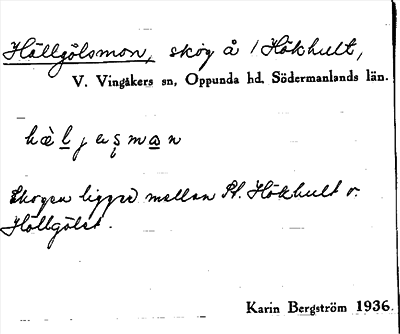 Hällgölsmon, skog å 1 Hökhult,
V. Vingåkers sn, Oppunda hd, Södermanlands län.
Skogen ligger mellan St. Hökhult o.
Hällgölst.
Karin Bergström 1936.